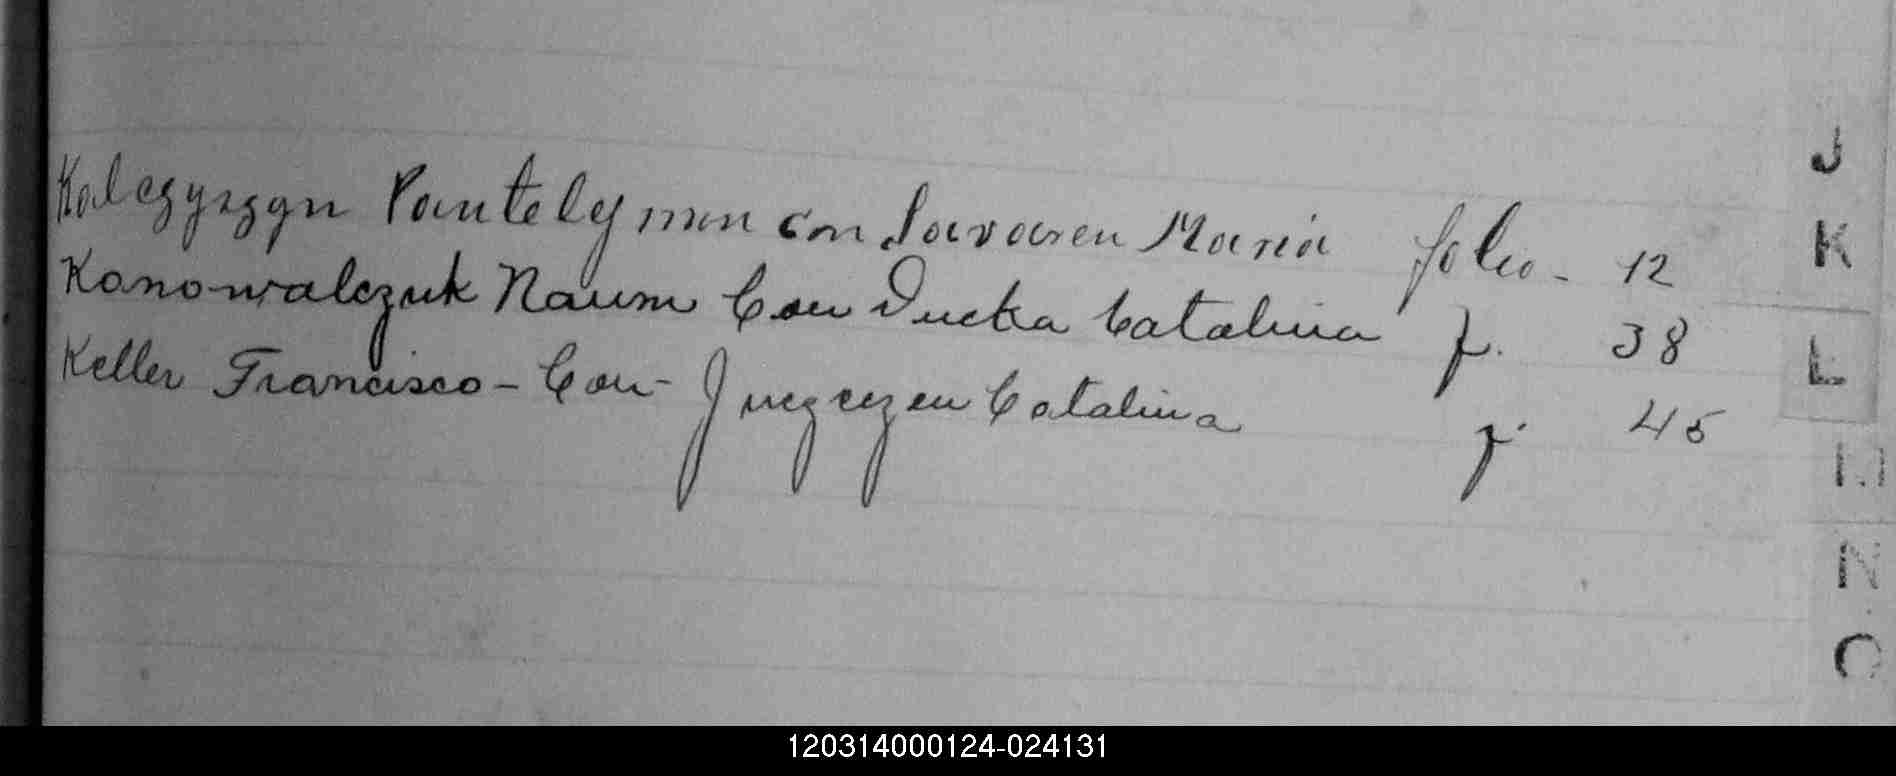 Kalczyszyn Pantelymon con Savaren Maria folio - 12
Konowalczuk Naum Con Ducka Catalina f. 38
Keller Francisco - Con - Catalina f. 45
J
K
L
M
N
O
120314000124-024131